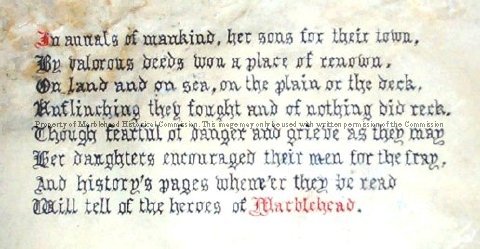 In annals of mankind, her sons for their town,
By valorous deeds won a place of renown,
On land and on sea, on the plain or the deck,
Unflinching they fought and of nothing did reck.
Property of Marblehead Historical Commission. This image may only be used with written permission of the Commission
Though fearful of danger and grieve as they may
Her daughters encouraged their men for the fray,
And history's pages whene'er they be read
Will tell of the heroes of Marblehead.